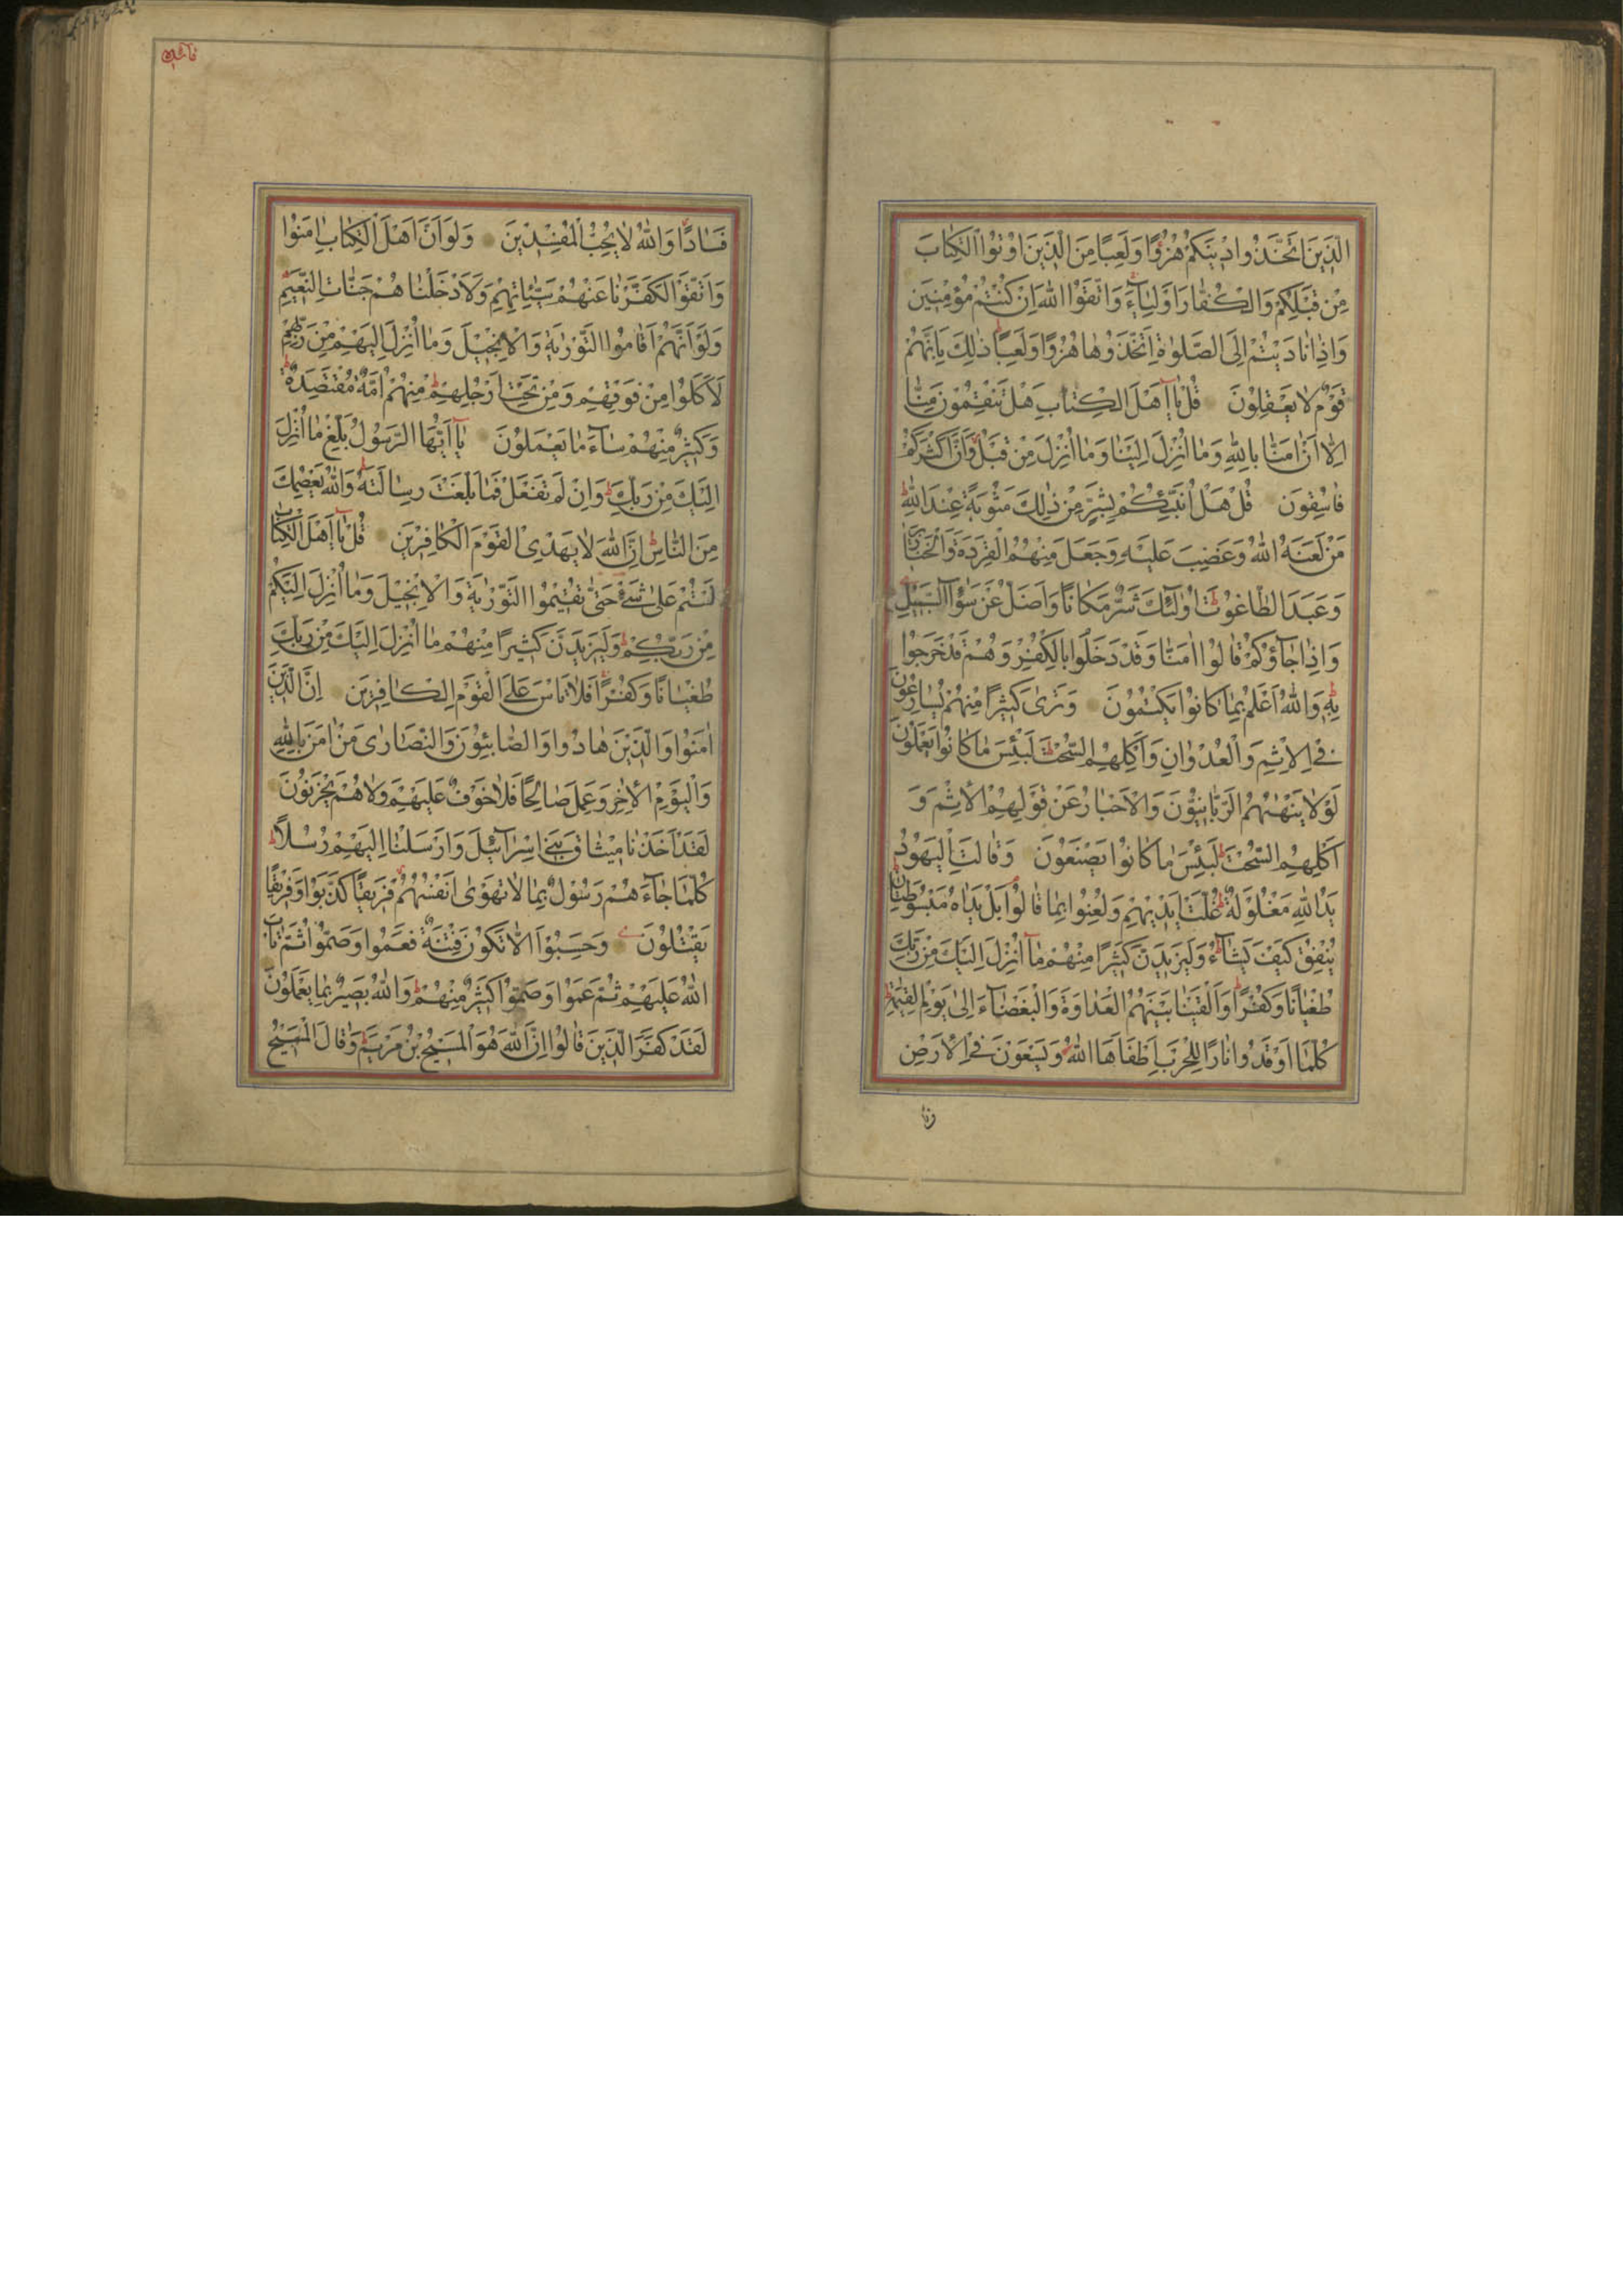 الَّذِينَ اتَّخَذُوا دِينَكُمْ هُزُوًا وَلَعِبًا مِنَ الَّذِينَ اُوتُوا الْكِتَابَ
مِنْ قَبْلِكُمْ وَالْكُفَّارَ اَوْلِيَاءَ وَاتَّقُوا اللهَ اِنْ كُنْتُمْ مُؤْمِنِينَ
وَاِذَا نَادَيْتُمْ اِلَى الصَّلٰوةِ اتَّخَذُوهَا هُزُوًا وَلَعِبًا ذٰلِكَ بِاَنَّهُمْ
قَوْمٌ لَا يَعْقِلُونَ قُلْ يَا اَهْلَ الْكِتَابِ هَلْ تَنْقِمُونَ مِنَّا
اِلَّا اَنْ اٰمَنَّا بِاللهِ وَمَا اُنْزِلَ اِلَيْنَا وَمَا اُنْزِلَ مِنْ قَبْلُ وَاَنَّ اَكْثَرَكُمْ
فَاسِقُونَ قُلْ هَلْ اُنَبِّئُكُمْ بِشَرٍّ مِنْ ذٰلِكَ مَثُوبَةً عِنْدَ اللهِ
مَنْ لَعَنَهُ اللهُ وَغَضِبَ عَلَيْهِ وَجَعَلَ مِنْهُمُ الْقِرَدَةَ وَالْخَنَازِيرَ
وَعَبَدَ الطَّاغُوتَ اُولٰئِكَ شَرٌّ مَكَانًا وَاَضَلُّ عَنْ سَوَاءِ السَّبِيلِ
وَاِذَا جَاؤُكُمْ قَالُوا اٰمَنَّا وَقَدْ دَخَلُوا بِالْكُفْرِ وَهُمْ قَدْ خَرَجُوا
بِهِ وَاللهُ اَعْلَمُ بِمَا كَانُوا يَكْتُمُونَ وَتَرٰى كَثِيرًا مِنْهُمْ يُسَارِعُونَ
فِي الْاِثْمِ وَالْعُدْوَانِ وَاَكْلِهِمُ السُّحْتَ لَبِئْسَ مَا كَانُوا يَعْمَلُونَ
لَوْلَا يَنْهٰيهُمُ الرَّبَّانِيُّونَ وَالْاَحْبَارُ عَنْ قَوْلِهِمُ الْاِثْمَ وَ
اَكْلِهِمُ السُّحْتَ لَبِئْسَ مَا كَانُوا يَصْنَعُونَ وَقَالَتِ الْيَهُودُ
يَدُ اللهِ مَغْلُولَةٌ غُلَّتْ اَيْدِيهِمْ وَلُعِنُوا بِمَا قَالُوا بَلْ يَدَاهُ مَبْسُوطَتَانِ
يُنْفِقُ كَيْفَ يَشَاءُ وَلَيَزِيدَنَّ كَثِيرًا مِنْهُمْ مَا اُنْزِلَ اِلَيْكَ مِنْ رَبِّكَ
طُغْيَانًا وَكُفْرًا وَاَلْقَيْنَا بَيْنَهُمُ الْعَدَاوَةَ وَالْبَغْضَاءَ اِلٰى يَوْمِ الْقِيٰمَةِ
كُلَّمَا اَوْقَدُوا نَارًا لِلْحَرْبِ اَطْفَاَهَا اللهُ وَيَسْعَوْنَ فِي الْاَرْضِ
فَسَادًا وَاللهُ لَا يُحِبُّ الْمُفْسِدِينَ وَلَوْ اَنَّ اَهْلَ الْكِتَابِ اٰمَنُوا
وَاتَّقَوْا لَكَفَّرْنَا عَنْهُمْ سَيِّئَاتِهِمْ وَلَاَدْخَلْنَاهُمْ جَنَّاتِ النَّعِيمِ
وَلَوْ اَنَّهُمْ اَقَامُوا التَّوْرٰيةَ وَالْاِنْجِيلَ وَمَا اُنْزِلَ اِلَيْهِمْ مِنْ رَبِّهِمْ
لَاَكَلُوا مِنْ فَوْقِهِمْ وَمِنْ تَحْتِ اَرْجُلِهِمْ مِنْهُمْ اُمَّةٌ مُقْتَصِدَةٌ
وَكَثِيرٌ مِنْهُمْ سَاءَ مَا يَعْمَلُونَ يَا اَيُّهَا الرَّسُولُ بَلِّغْ مَا اُنْزِلَ
اِلَيْكَ مِنْ رَبِّكَ وَاِنْ لَمْ تَفْعَلْ فَمَا بَلَّغْتَ رِسَالَتَهُ وَاللهُ يَعْصِمُكَ
مِنَ النَّاسِ اِنَّ اللهَ لَا يَهْدِي الْقَوْمَ الْكَافِرِينَ قُلْ يَا اَهْلَ الْكِتَابِ
لَسْتُمْ عَلٰى شَيْءٍ حَتّٰى تُقِيمُوا التَّوْرٰيةَ وَالْاِنْجِيلَ وَمَا اُنْزِلَ اِلَيْكُمْ
مِنْ رَبِّكُمْ وَلَيَزِيدَنَّ كَثِيرًا مِنْهُمْ مَا اُنْزِلَ اِلَيْكَ مِنْ رَبِّكَ
طُغْيَانًا وَكُفْرًا فَلَا تَاْسَ عَلَى الْقَوْمِ الْكَافِرِينَ اِنَّ الَّذِينَ
اٰمَنُوا وَالَّذِينَ هَادُوا وَالصَّابِئُونَ وَالنَّصَارٰى مَنْ اٰمَنَ بِاللهِ
وَالْيَوْمِ الْاٰخِرِ وَعَمِلَ صَالِحًا فَلَا خَوْفٌ عَلَيْهِمْ وَلَا هُمْ يَحْزَنُونَ
لَقَدْ اَخَذْنَا مِيثَاقَ بَنِي اِسْرَائِيلَ وَاَرْسَلْنَا اِلَيْهِمْ رُسُلًا
كُلَّمَا جَاءَهُمْ رَسُولٌ بِمَا لَا تَهْوٰى اَنْفُسُهُمْ فَرِيقًا كَذَّبُوا وَفَرِيقًا
يَقْتُلُونَ وَحَسِبُوا اَلَّا تَكُونَ فِتْنَةٌ فَعَمُوا وَصَمُّوا ثُمَّ تَابَ
اللهُ عَلَيْهِمْ ثُمَّ عَمُوا وَصَمُّوا كَثِيرٌ مِنْهُمْ وَاللهُ بَصِيرٌ بِمَا يَعْمَلُونَ
لَقَدْ كَفَرَ الَّذِينَ قَالُوا اِنَّ اللهَ هُوَ الْمَسِيحُ بْنُ مَرْيَمَ وَقَالَ الْمَسِيحُ